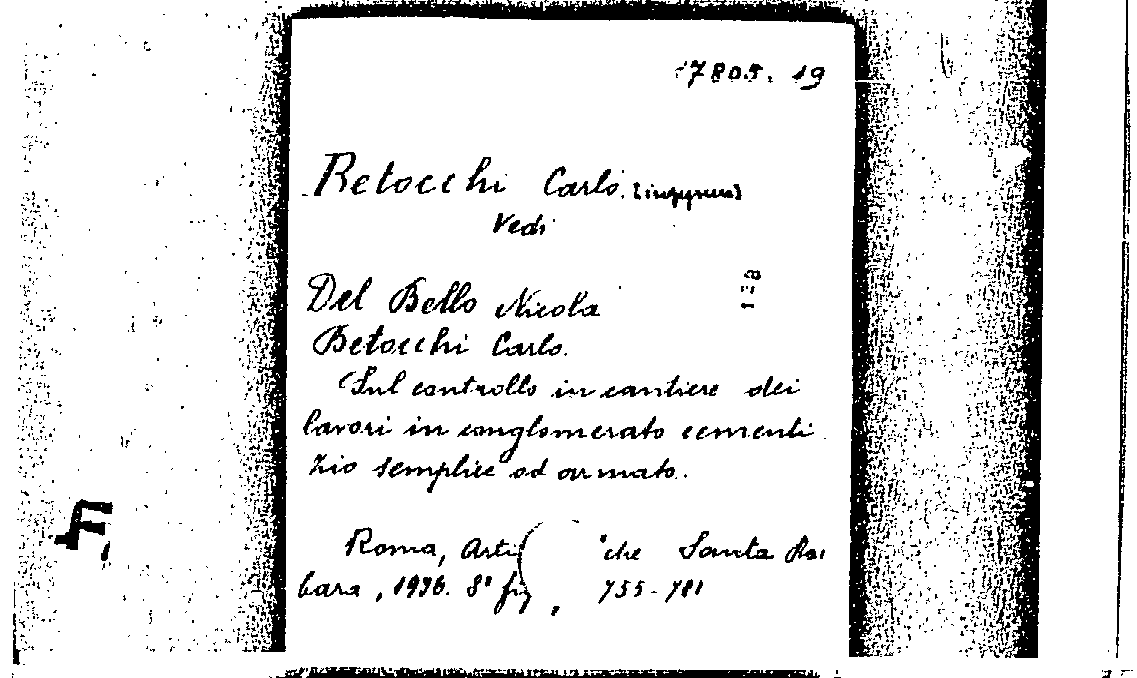 17805.19
Betocchi Carlo. [ingegnere]
Vedi
Del Bello Nicola
Betocchi Carlo.
Sul controllo in cantiere dei
lavori in conglomerato cementi
zio semplice ed armato.
Roma, Arti che Santa Bar
bara, 1936. 8° fig, 755-781
F,